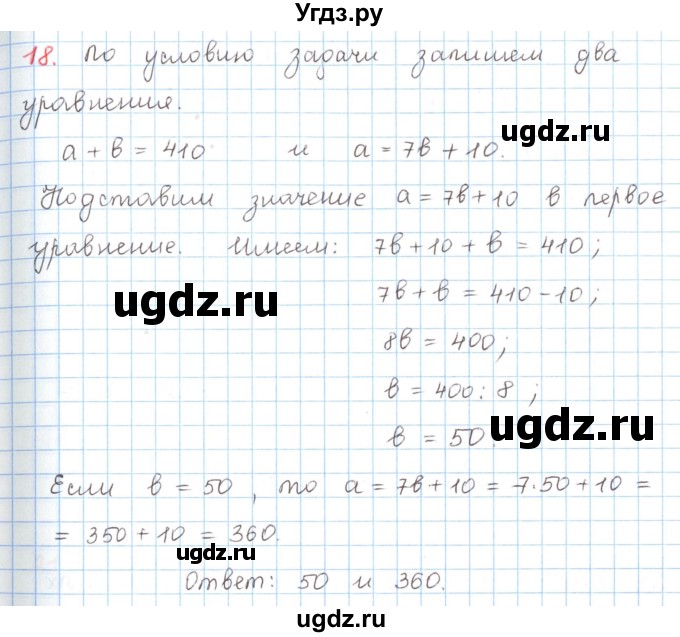 Угдз.ру
18. По условию задачи запишем два
уравнения.
a + b = 410 и a = 7b + 10.
ugdz.ru
Подставим значение a = 7b + 10 в первое
уравнение. Имеем: 7b + 10 + b = 410;
ugdz.ru
7b + b = 410 - 10;
8b = 400;
b = 400 : 8;
ugdz.ru
b = 50.
Если b = 50, то a = 7b + 10 = 7·50 + 10 =
= 350 + 10 = 360.
ugdz.ru
Ответ: 50 и 360.
ugdz.ru